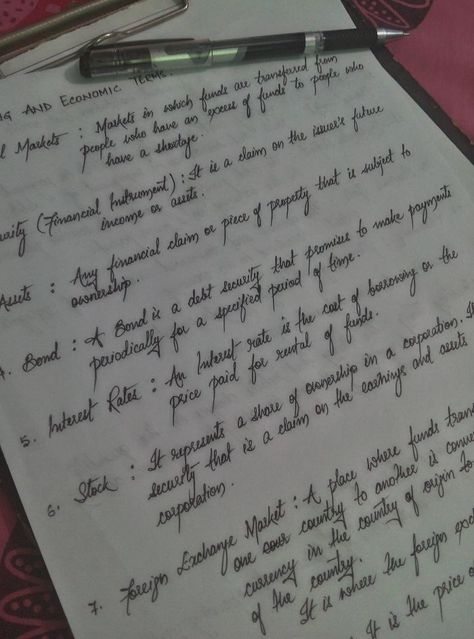 G AND ECONOMIC TERMS.
l Markets : Markets in which funds are transferred from
people who have an excess of funds to people who
have a shortage.
urity (Financial Instrument) : It is a claim on the issuer's future
income or assets.
Assets : Any financial claim or piece of property that is subject to
ownership.
4. Bond : A Bond is a debt security that promises to make payments
periodically for a specified period of time.
5. Interest Rates : An Interest rate is the cost of borrowing or the
price paid for rental of funds.
6. Stock : It represents a share of ownership in a corporation. It
security that is a claim on the earnings and assets
corporation.
7. Foreign Exchange Market : A place where funds tran
one country to another is conve
currency in the country of origin to
of the country.
It is where the foreign exc
It is the price o